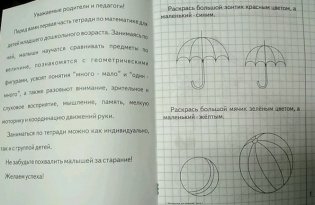 Уважаемые родители и педагоги!
Перед вами первая часть тетради по математике для
детей младшего дошкольного возраста. Занимаясь по
ней, малыши научатся сравнивать предметы по
величине, познакомятся с геометрическими
фигурами, усвоят понятия "много - мало" и "один -
много", а также разовьют внимание, зрительное и
слуховое восприятие, мышление, память, мелкую
моторику и координацию движений руки.
Заниматься по тетради можно как индивидуально,
так и с группой детей.
Не забудьте похвалить малышей за старание!
Желаем успеха!
Раскрась большой зонтик красным цветом, а
маленький - синим.
Раскрась большой мячик зелёным цветом, а
маленький - жёлтым.